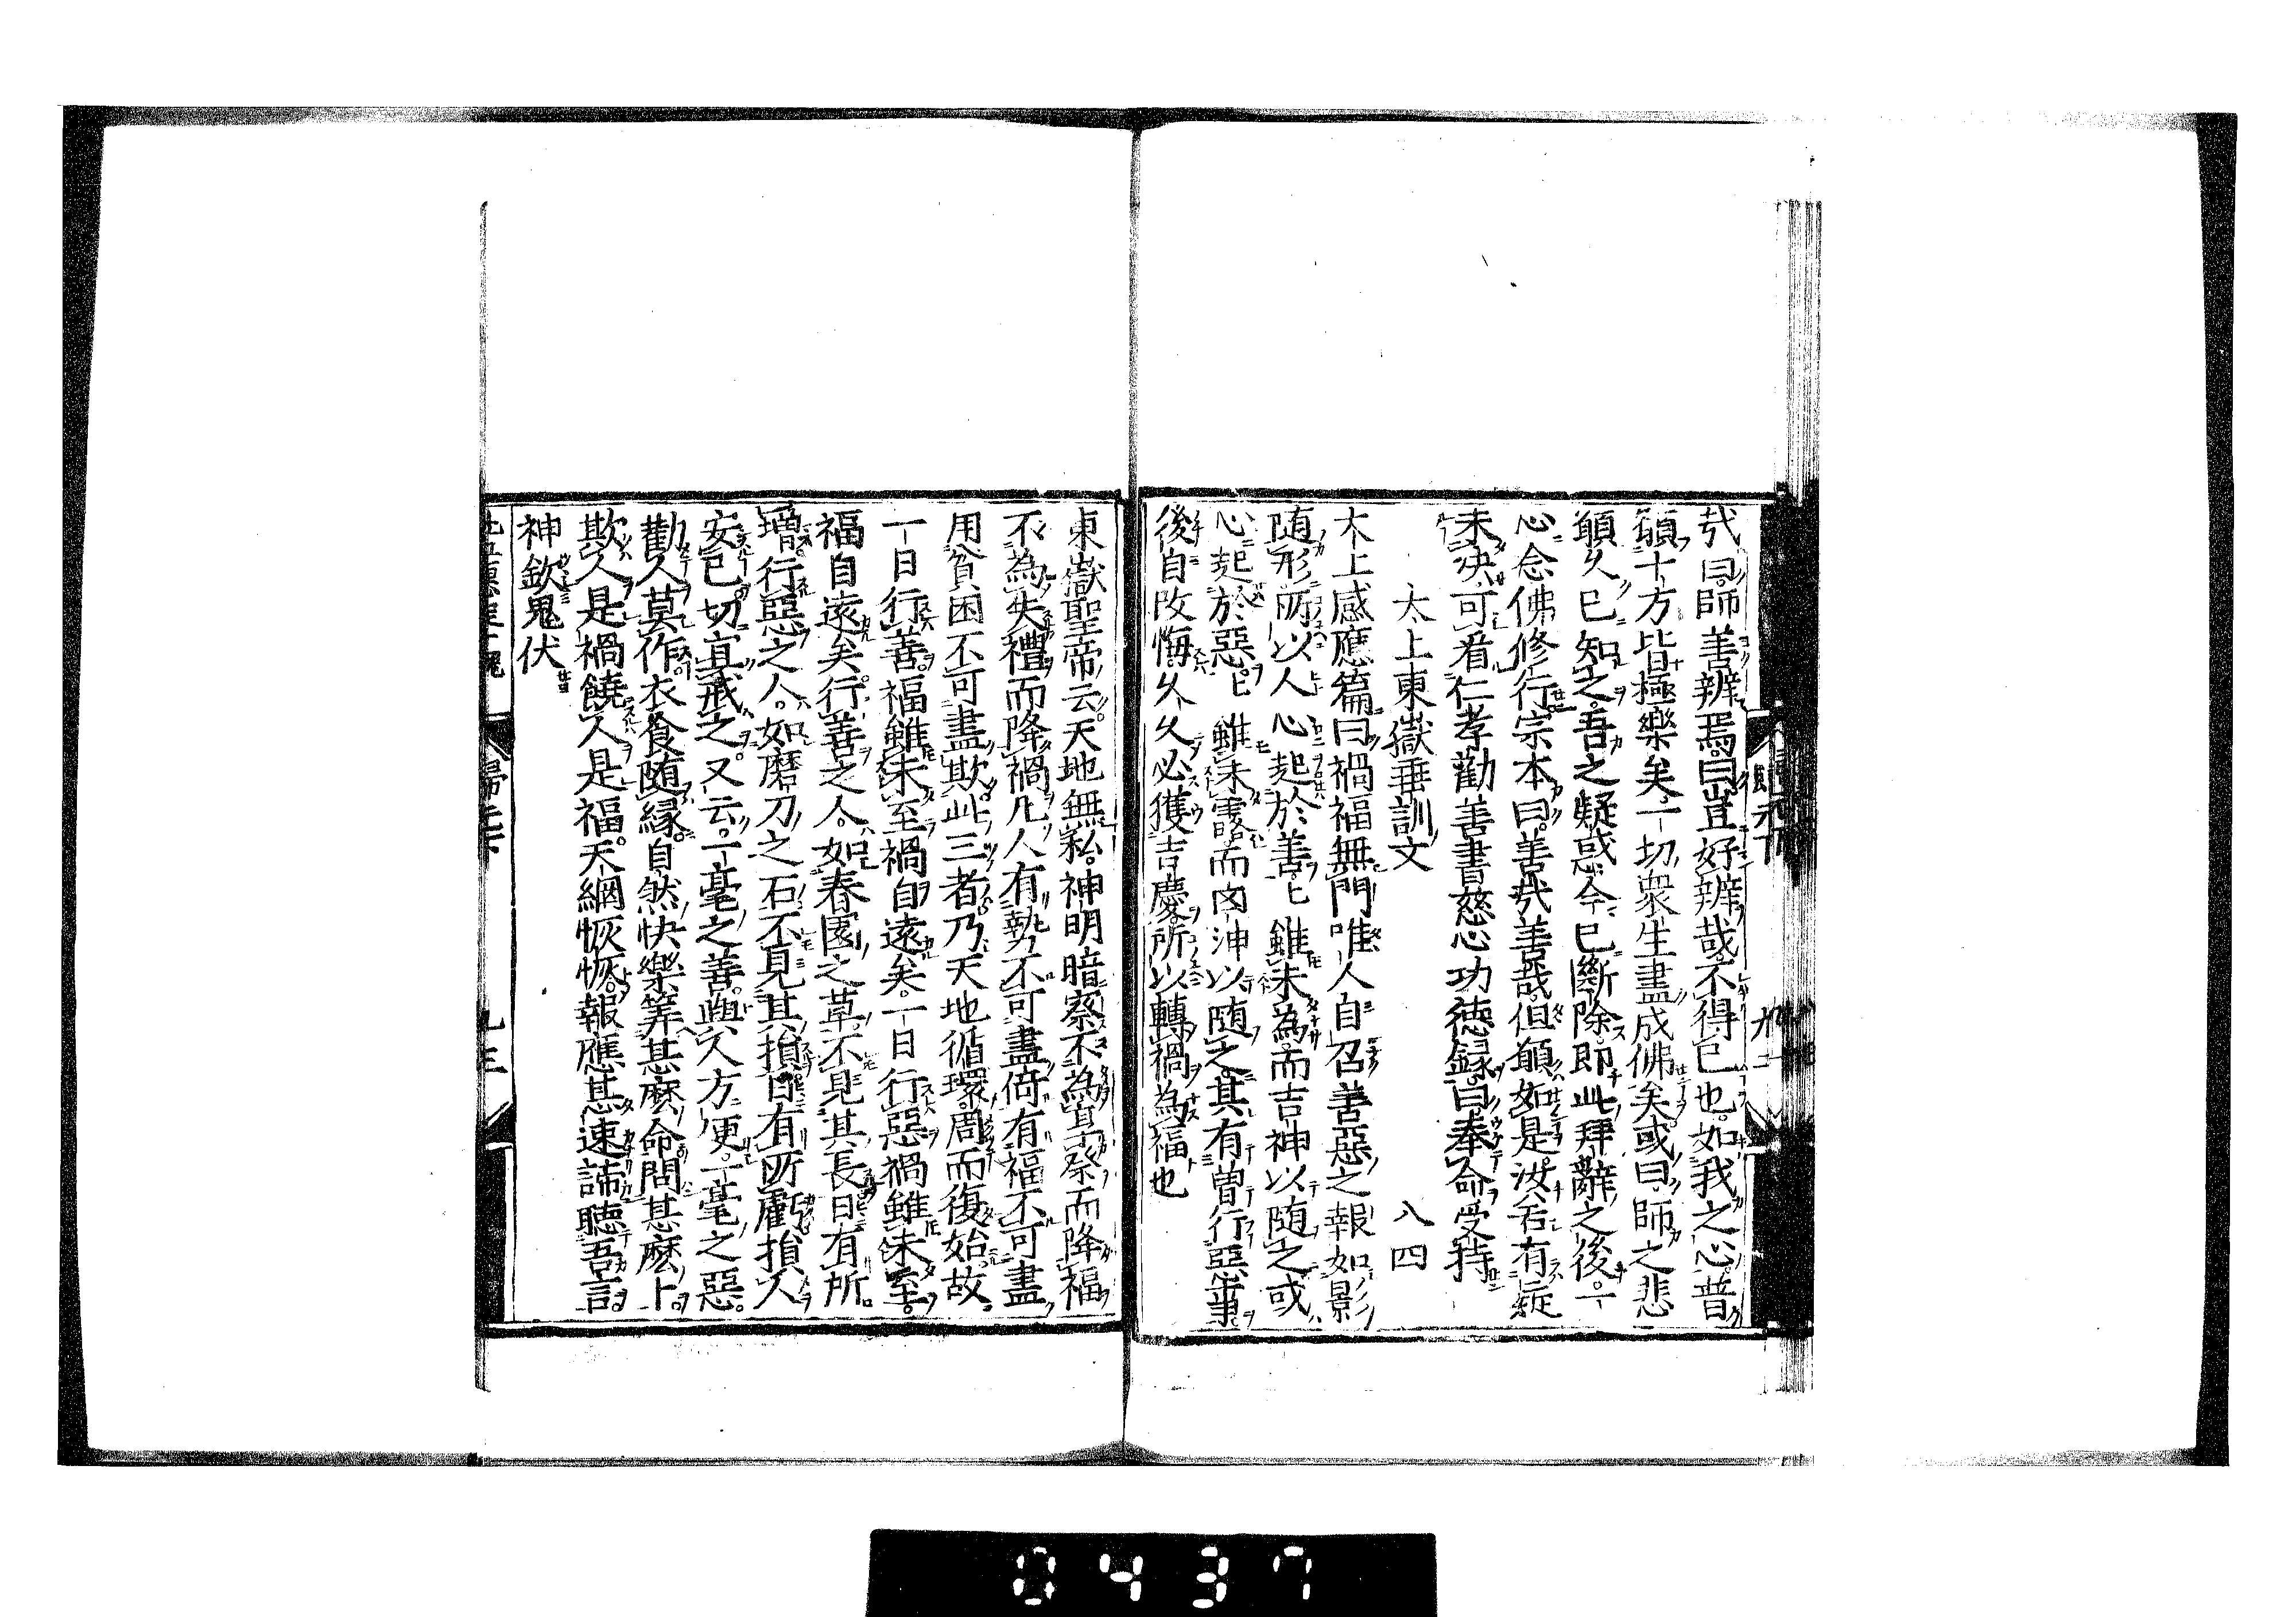 㢤曰師善辨焉曰豈好辨哉不得已也如我之心普
願十方皆極樂矣一切衆生盡成佛矣或曰師之悲
願久已知之吾之疑惑今已斷除即此拜辭之後一
心念佛修行宗本曰善哉善哉但願如是汝若有疑
未决可看仁孝勸善書慈心功德録曰奉命受持
太上東嶽垂訓文 八四
太上感應篇曰禍福無門唯人自召善惡之報如影
隨形所以人心起於善ヒ雖未為而吉神以隨之或
心起於惡ヒ雖未露而凶神以隨之其有曽行惡事
後自改悔久久必獲吉慶所以轉禍為福也
東嶽聖帝云天地無私神明暗察不為享祭而降福
不為失禮而降禍凡人有勢不可盡倚有福不可盡
用貧困不可盡欺此三者乃天地循環周而復始故
一日行善福雖未至禍自遠矣一日行惡禍雖未至
福自遠矣行善之人如春園之草不見其長日有所
增行惡之人如磨刀之石不見其損日有所虧損人
安己切宜戒之又云一毫之善與人方便一毫之惡
勸人莫作衣食隨緣自然快樂筭甚麽命問甚麽卜
欺人是禍饒人是福天網恢恢報應甚速諦聽吾言
神欽鬼伏
九三
0437